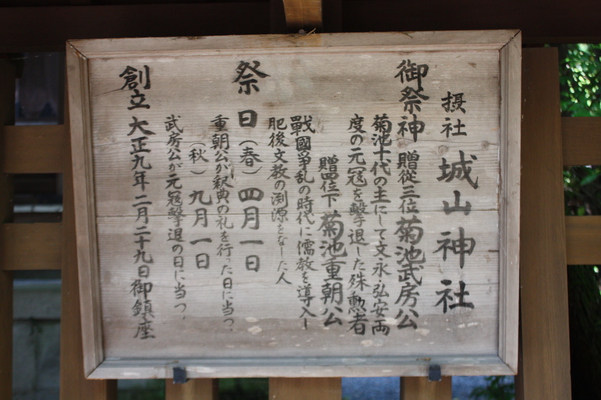 摂社 城山神社
御祭神 贈従三位 菊池武房公
菊池十代の主にして文永・弘安両
度の元冦を擊退した殊勲者
贈四位下 菊池重朝公
戦國爭乱の時代に儒教を導入し
肥後文教の渕源となした人
祭日（春）四月一日
重朝公が釈典の礼を行った日に当つ、
（秋）九月一日
武房公が元冦擊退の日に当つ、
創立 大正九年二月二十九日御鎮座